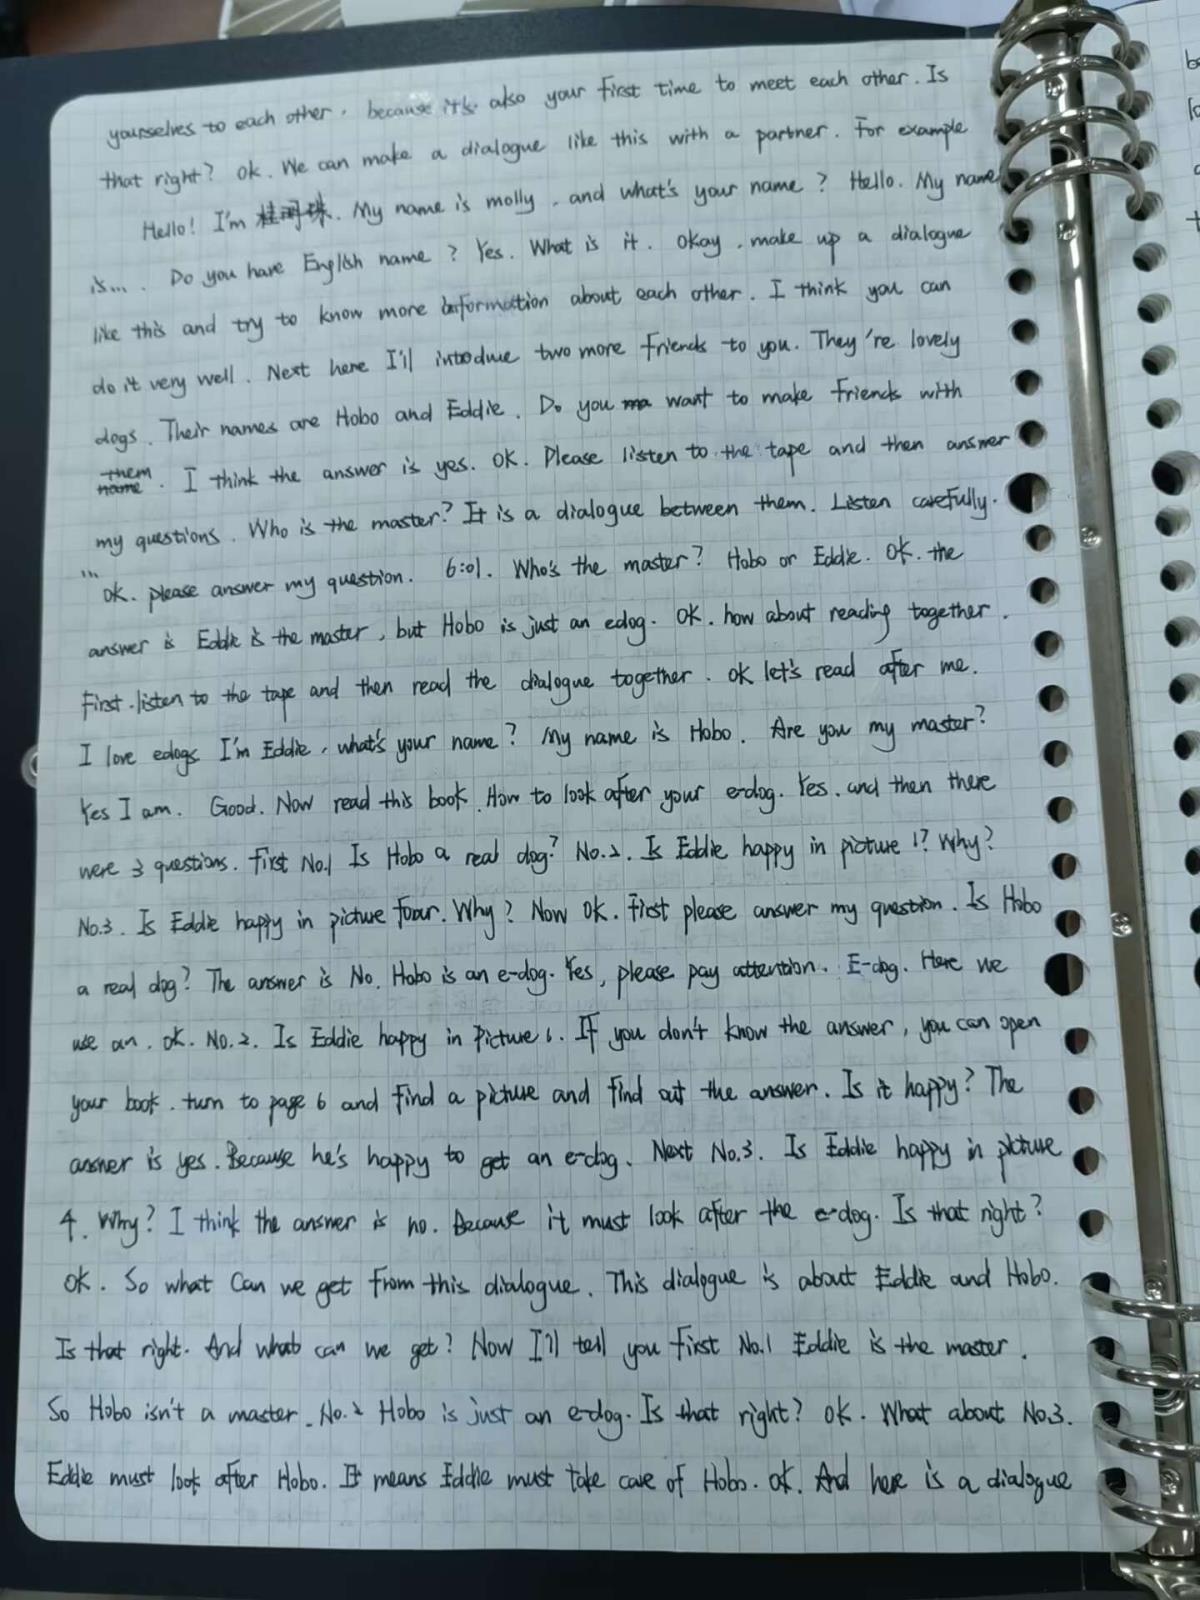 yourselves to each other, because it's also your first time to meet each other. Is
that right? Ok. We can make a dialogue like this with a partner. For example
Hello! I'm My name is molly, and what's your name? Hello. My name
is... . Do you have English name? Yes. What is it. Okay, make up a dialogue
like this and try to know more information about each other. I think you can
do it very well. Next here I'll introdue two more friends to you. They're lovely
dogs. Their names are Hobo and Eddie. Do you want to make friends with
them. I think the answer is yes. Ok. Please listen to the tape and then answer
my questions. Who is the master? It is a dialogue between them. Listen carefully.
...
ok. please answer my question. 6:01. Who's the master? Hobo or Eddie. Ok. the
answer is Eddie is the master, but Hobo is just an edog. OK. how about reading together.
First. listen to the tape and then read the dialogue together. ok let's read after me.
I love edogs I'm Eddie, what's your name? My name is Hobo. Are you my master?
Yes I am. Good. Now read this book. How to look after your e-dog. Yes. and then there
were 3 questions. First No.1 Is Hobo a real dog? No.2. Is Eddie happy in picture 1? Why?
No.3. Is Eddie happy in picture four. Why? Now ok. First please answer my question. Is Hobo
a real dog? The answer is No. Hobo is an e-dog. Yes, please pay attention. E-dog. Here we
use an. ok. No.2. Is Eddie happy in Picture 6. If you don't know the answer, you can open
your book. turn to page 6 and find a picture and find out the answer. Is it happy? The
answer is yes. Because he's happy to get an e-dog. Next No.3. Is Eddie happy in picture
4. Why? I think the answer is no. Because it must look after the e-dog. Is that right?
ok. So what Can we get from this dialogue. This dialogue is about Eddie and Hobo.
Is that right. And what can we get? Now I'll tell you first No.1 Eddie is the master.
So Hobo isn't a master. No.2 Hobo is just an e-dog. Is that right? ok. What about No.3.
Eddie must look after Hobo. It means Eddie must take care of Hobo. ok. And here is a dialogue